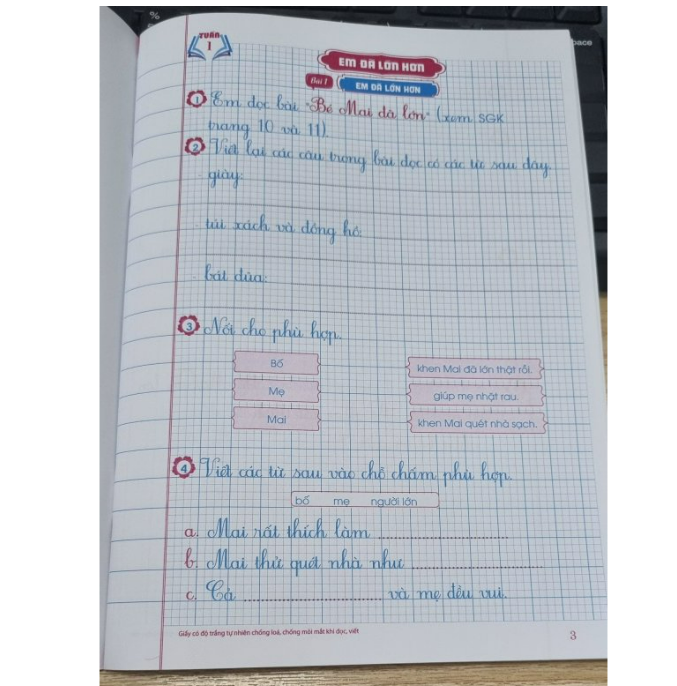 TUẦN
1
EM ĐÃ LỚN HƠN
Bài 1
EM ĐÃ LỚN HƠN
1 Em đọc bài "Bé Mai đã lớn" (xem SGK
trang 10 và 11).
2 Viết lại các câu trong bài đọc có các từ sau đây.
- giày:
- túi xách và đồng hồ:
- bát đũa:
3 Nối cho phù hợp.
Bố
khen Mai đã lớn thật rồi.
Mẹ
giúp mẹ nhặt rau.
Mai
khen Mai quét nhà sạch.
4 Viết các từ sau vào chỗ chấm phù hợp.
bố mẹ người lớn
a. Mai rất thích làm ..............................
b. Mai thử quét nhà như ..............................
c. Cả .............................. và mẹ đều vui.
Giấy có độ trắng tự nhiên chống loá, chống mỏi mắt khi đọc, viết
3